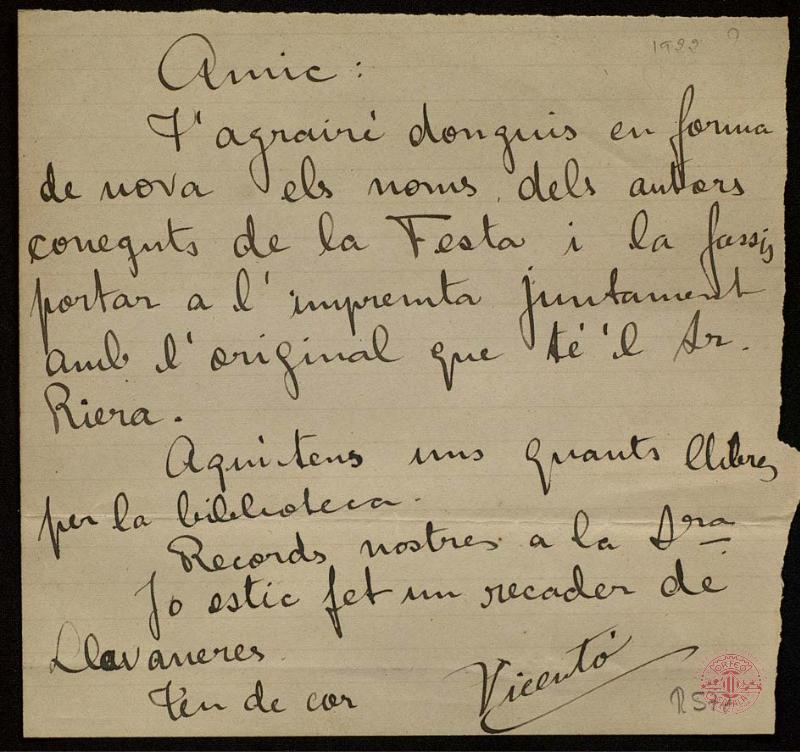 1922
Amic:
T'agrairé donguis en forma
de nova els noms dels autors
coneguts de la Festa i la fassis
portar a l'impremta juntament
amb l'original que té'l Sr.
Riera.
Aquitens uns quants llibres
per la biblioteca.
Records nostres a la Sra
Jo estic fet un recader de
Llavaneres
Teu de cor
Vicentó
ORFEÓ